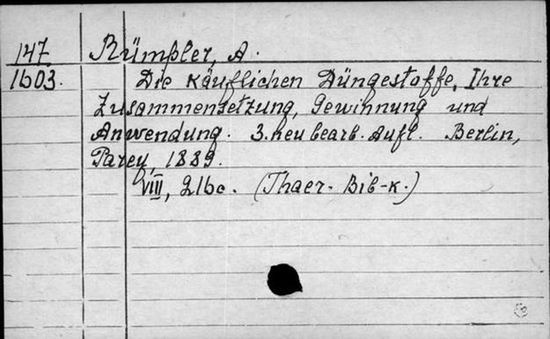 147
1603.
Rümpler, A.
Die käuflichen Düngestoffe, Ihre
Zusammensetzung, Gewinnung und
Anwendung. 3. neubearb. Aufl. Berlin,
Parey, 1889.
VIII, 216c. (Thaer-Bib-k.)